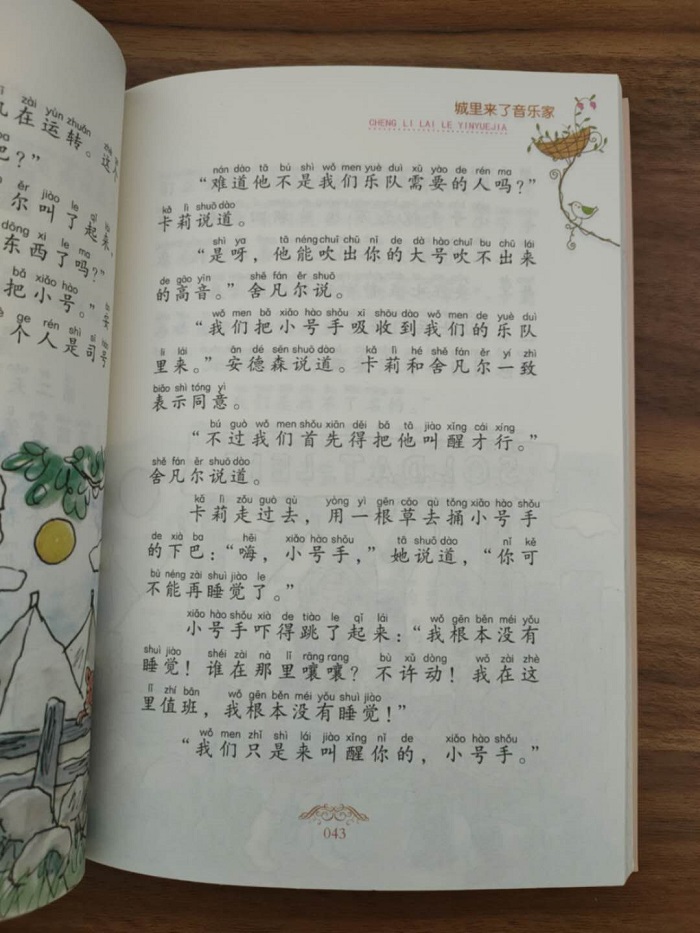 zài yùn zhuǎn
几在运转。这个
吧？”
ěr jiào le qǐ
尔叫了起来，
dōng xi le ma
东西了吗？”
bǎ xiǎo hào
把小号。”安
ge rén shì sī
个人是司号
城里来了音乐家
CHENG LI LAI LE YINYUEJIA
nán dào tā bú shì wǒ men yuè duì xū yào de rén ma
“难道他不是我们乐队需要的人吗？”
kǎ lì shuō dào
卡莉说道。
shì ya tā néng chuī chū nǐ de dà hào chuī bu chū lái
“是呀，他能吹出你的大号吹不出来
de gāo yīn shě fán ěr shuō
的高音。”舍凡尔说。
wǒ men bǎ xiǎo hào shǒu xī shōu dào wǒ men de yuè duì
“我们把小号手吸收到我们的乐队
li lái ān dé sēn shuō dào kǎ lì hé shě fán ěr yí zhì
里来。”安德森说道。卡莉和舍凡尔一致
biǎo shì tóng yì
表示同意。
bú guò wǒ men shǒu xiān děi bǎ tā jiào xǐng cái xíng
“不过我们首先得把他叫醒才行。”
shě fán ěr shuō dào
舍凡尔说道。
kǎ lì zǒu guò qù yòng yì gēn cǎo qù tǒng xiǎo hào shǒu
卡莉走过去，用一根草去捅小号手
de xià ba hēi xiǎo hào shǒu tā shuō dào nǐ kě
的下巴：“嗨，小号手，”她说道，“你可
bù néng zài shuì jiào le
不能再睡觉了。”
xiǎo hào shǒu xià de tiào le qǐ lái wǒ gēn běn méi yǒu
小号手吓得跳了起来：“我根本没有
shuì jiào shéi zài nà lǐ rāng rang bù xǔ dòng wǒ zài zhè
睡觉！谁在那里嚷嚷？不许动！我在这
lǐ zhí bān wǒ gēn běn méi yǒu shuì jiào
里值班，我根本没有睡觉！”
wǒ men zhǐ shì lái jiào xǐng nǐ de xiǎo hào shǒu
“我们只是来叫醒你的，小号手。”
043